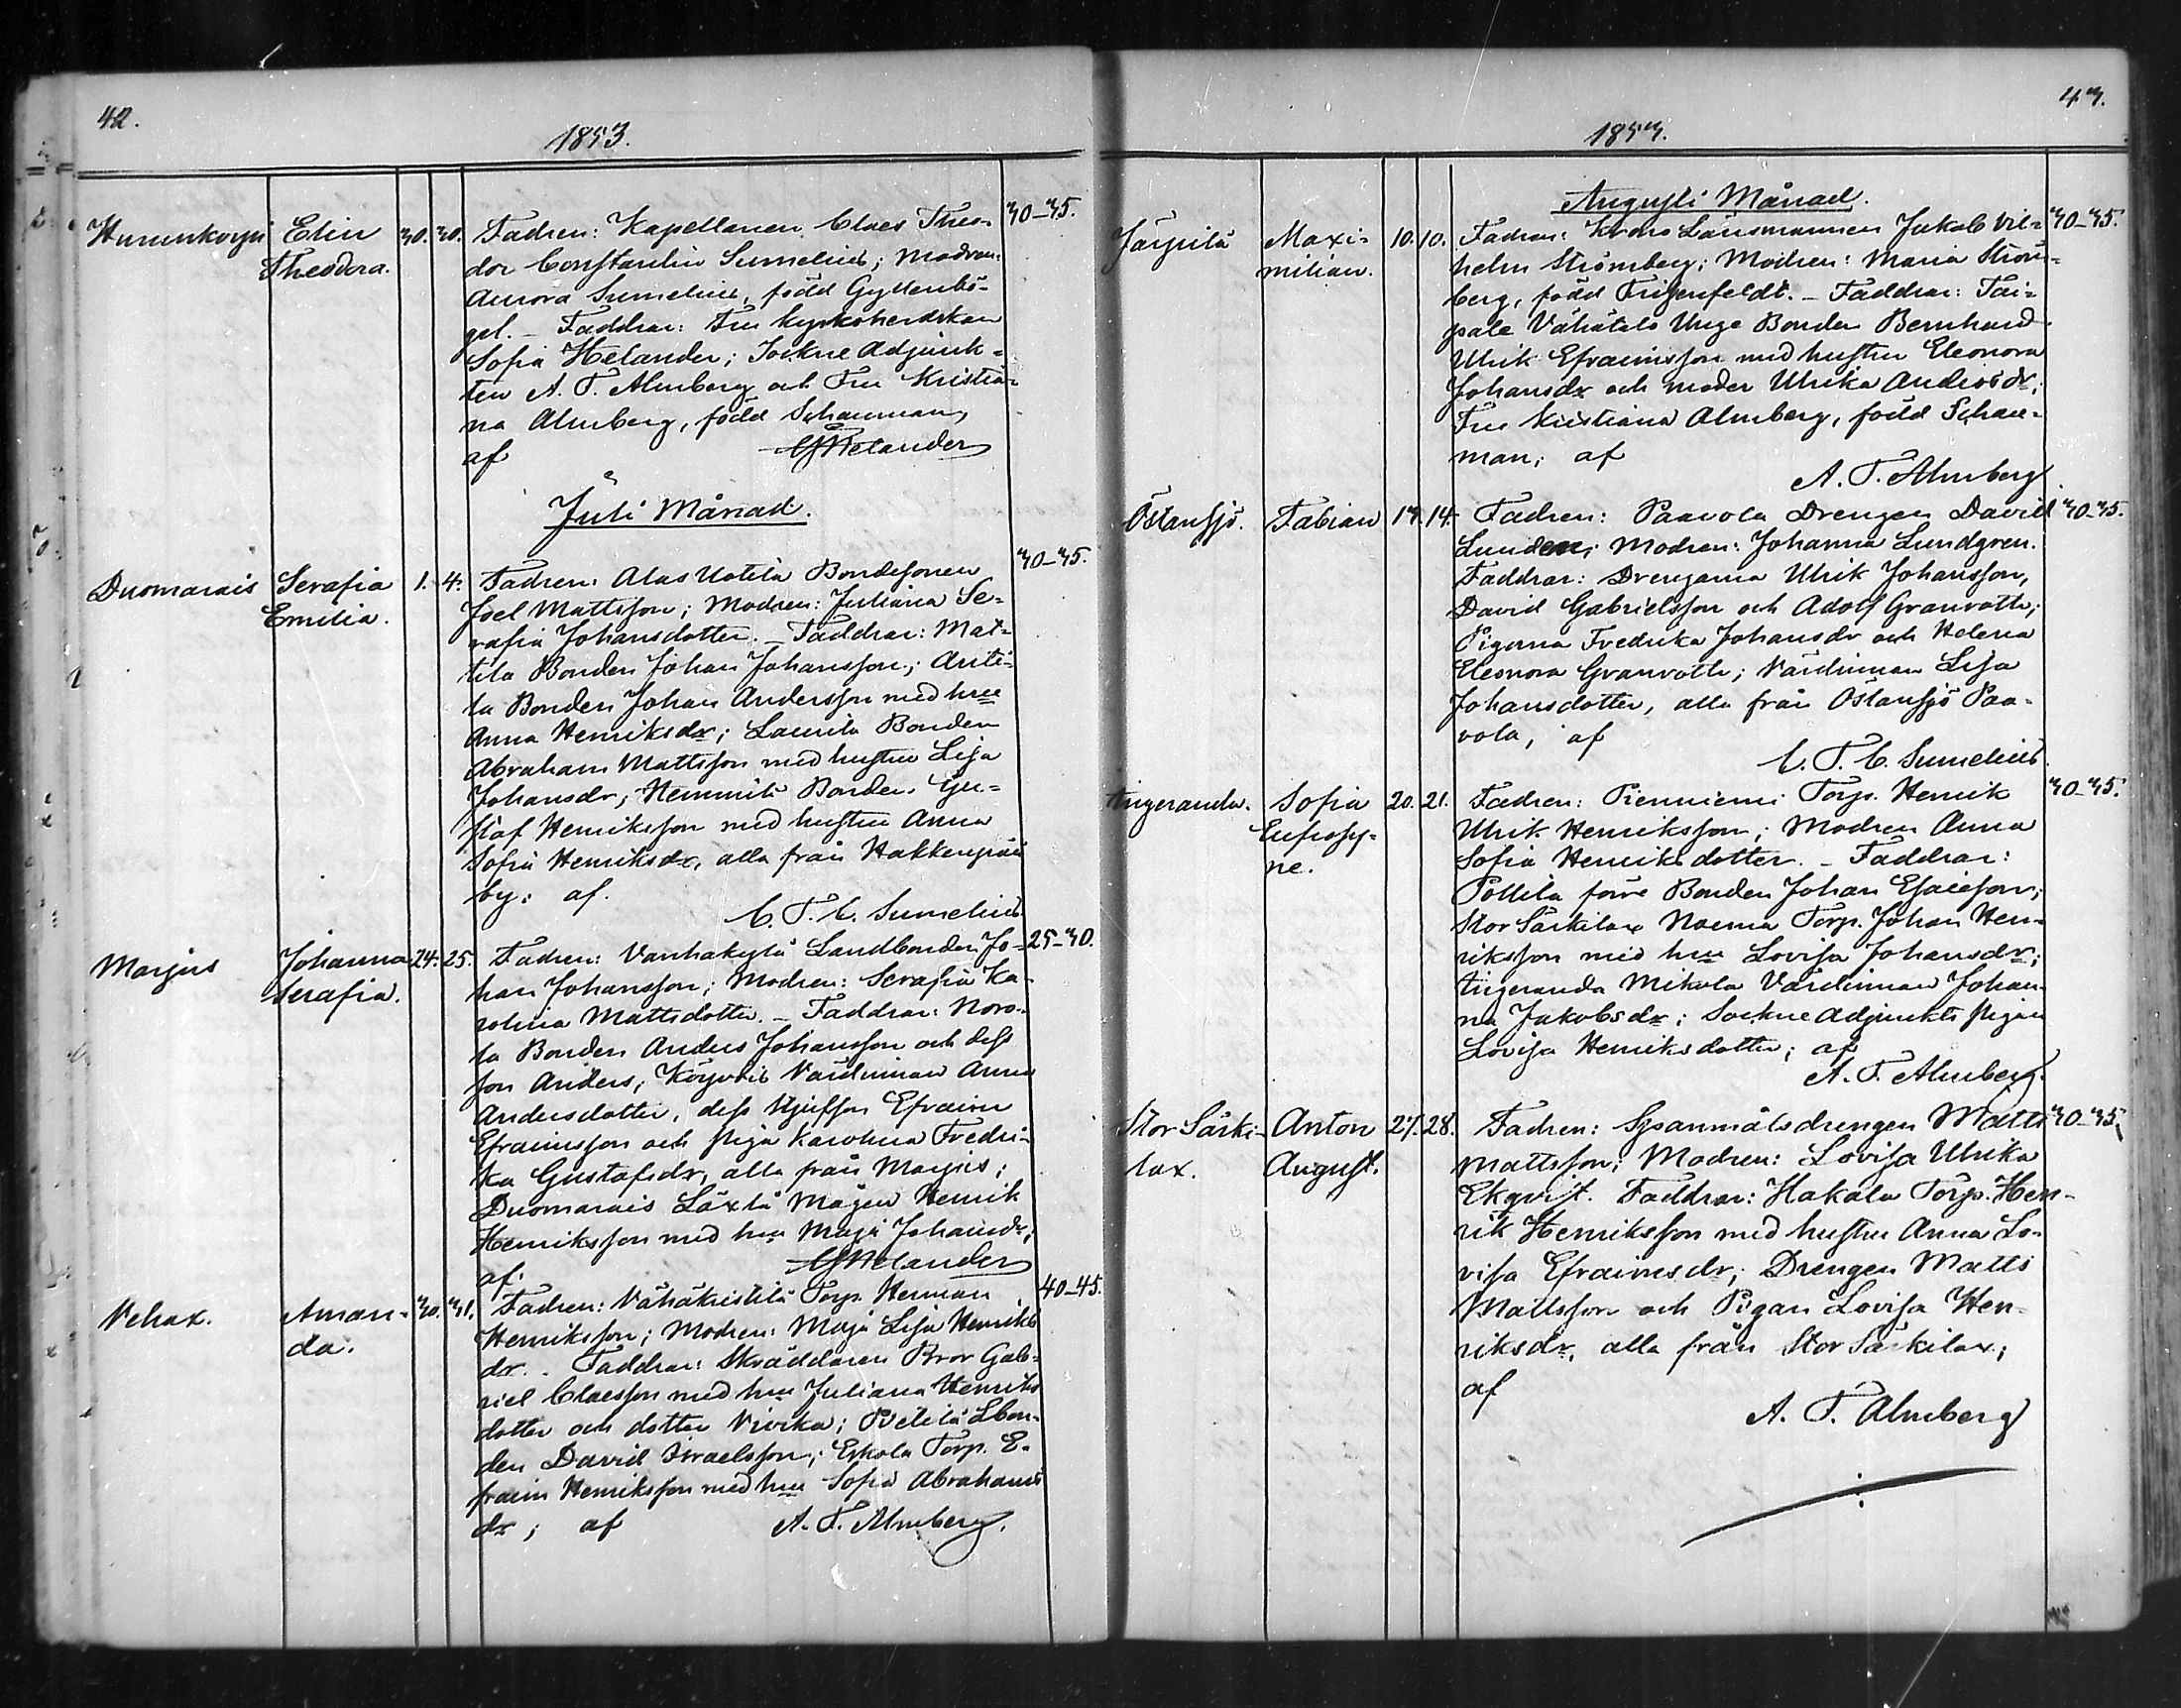 42.
1853.
Elin
Theodora.
30. 30.
Fadren: Kapellanen Claes Theo-
dor Constantin Sumelius; Modren:
Aurora Sumelius, född Gyllenbö-
gel. – Faddrar: Fru Kyrkoherdskan
Sofia Helander; Sockne Adjunk-
ten A. F. Almberg och Fru Kristia-
na Almberg, född Schauman,
af
Helander
30–35.
Juli Månad.
Duomarais
Serafia
Emilia.
1. 4.
Fadren: Alas Uotila Bondesonen
Joel Mattsson; Modren: Juliana Se-
rafia Johansdotter. – Faddrar: Mat-
tila Bonden Johan Johansson; Anti-
la Bonden Johan Andersson med hru
Anna Henriksdr; Laurila Bonden
Abraham Mattsson med hustru Lisa
Johansdr; Hemmilä Bonden Gu-
staf Henriksson med hustru Anna
Sofia Henriksdr, alla från
by; af.
C. T. C. Sumelius
30–35.
Marjus
Johanna
Serafia.
24. 25.
Fadren: Vanhakylä Landbonden Jo-
han Johansson; Modren: Serafia Ka-
rolina Mattsdotter. – Faddrar: Noro-
la Bonden Anders Johansson och dess
son Anders; Värdinnan Anna
Andersdotter, dess styfson Efraim
Efraimsson och piga Karolina Fredri-
ka Gustafsdr, alla från Marjus;
Duomarais Mågen Henrik
Henriksson med hru Maja Johansdr;
af.
Helander
25–30.
Vehax.
Aman-
da.
30. 31.
Fadren: Vähäkristilä Torp. Herman
Henriksson; Modren: Maja Lisa Henriks
dr. – Faddrar: Skräddaren Bror Gab-
riel Claesson med hru Juliana Henriks
dotter och dotter Vivika; Lbon-
den David Israelsson; Eskola Torp. E-
fraim Henriksson med hru Sofia Abrahams
dr; af
A. F. Almberg.
40–45.
43.
1853.
Augusti Månad.
Järpilä
Maxi-
milian.
10. 10.
Fadren: Krono Länsmannen Jakob Vil-
helm Strömberg; Modren: Maria Ström-
berg, född – Faddrar: Tai-
pale Vähätalo Unge Bonden Bernhard
Ulrik Efraimsson med hustru Eleonora
Johansdr och moder Ulrika Andersdr;
Fru Kristiana Almberg, född Schau-
man; af
A. F. Almberg.
30–35.
Östansjö.
Fabian
14. 14.
Fadren: Paavola Drengen David
Lunden; Modren: Johanna Lundgren.
Faddrar: Drengarna Ulrik Johansson,
David Gabrielsson och Adolf Granroth;
Pigorna Fredrika Johansdr och Helena
Eleonora Granroth; Värdinnan Lisa
Johansdotter, alla från Östansjö Paa-
vola, af
C. T. C. Sumelius.
30–35.
Sofia
Eufrosy-
ne.
20. 21.
Fadren: Pienniemi Torp. Henrik
Ulrik Henriksson; Modren Anna
Sofia Henriksdotter. – Faddrar:
Pottila förre Bonden Johan Esaiasson;
Stor Särkilax Norma Torp. Johan Hen-
riksson med hru Lovisa Johansdr;
Mikola Värdinnan Johan-
na Jakobsdr; Sockne Adjunkts pigan
Lovisa Henriksdotter; af
A. F. Almberg.
30–35.
Stor Särki-
lax.
Anton
August.
27. 28.
Fadren: Matts
Mattsson; Modren: Lovisa Ulrika
Ekqvist. Faddrar: Hakala Torp. Hen-
rik Henriksson med hustru Anna Lo-
visa Efraimsdr; Drengen Matts
Mattsson och Pigan Lovisa Hen-
riksdr, alla från Stor Särkilax;
af
A. F. Almberg
30–35.